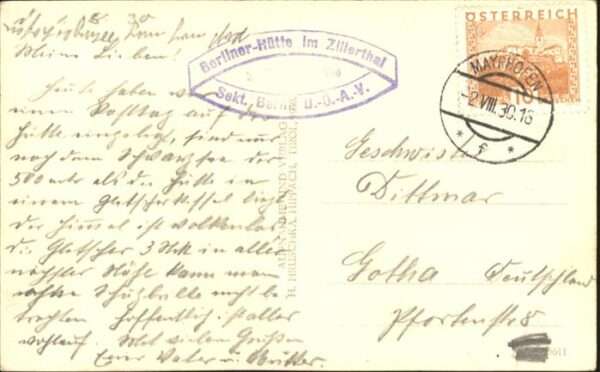 Meine Lieben!
Heute haben wir
einen Rasttag auf der
Hütte eingelegt, sind nur
nach dem Schwarzsee der
500 mtr als die Hütte in
einem Gletscherkessel liegt
der Himmel ist wolkenlos
die Gletscher 3 Stck in aller
nächster Nähe kann man
ohne Schutzbrille nicht be
trachten hoffentlich ist alles
wohlauf. Mit vielen Grüßen
Euer Vater u. Mutter.
Berliner-Hütte im Zillerthal
Sekt. Berlin D.-Ö.-A.-V.
ÖSTERREICH
10
MAYRHOFEN
-2.VIII.30.16
* f *
Geschwister
Dittmar
Gotha Deutschland
Pfortenstr 8